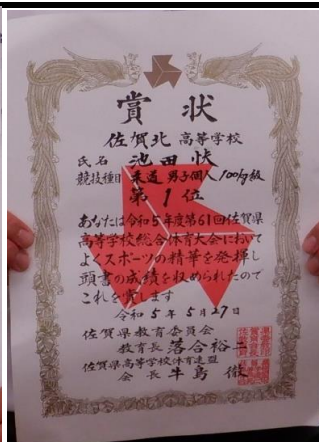 賞状
佐賀北 高等学校
氏名 池田
競技種目 柔道 男子個人 100kg級
第1位
あなたは令和5年度第61回佐賀県
高等学校総合体育大会において
よくスポーツの精華を発揮し
頭書の成績を収められたので
これを賞します
令和5年5月27日
佐賀県教育委員会
教育長 落合裕二
佐賀県高等学校体育連盟
会長 牛島 徹